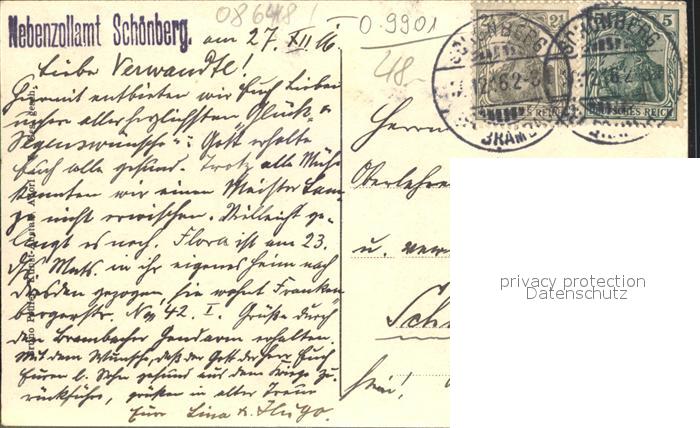 086418 !
0-9901
48.-
Nebenzollamt Schönberg.
am 27. XII 16.
Liebe Verwandte!
Hiermit entbieten wir Euch Lieben
unsere allerherzlichsten "Glück- u.
Segenswünsche"! Gott erhalte
Euch alle gesund. Trotz alle Mühe
konnten wir einen Meister Lam-
pe nicht erwischen. Vielleicht ge-
lingt es noch. Flora ist am 23.
ds. Mts. in ihr eigenes Heim nach
Dresden gezogen, sie wohnt Franken-
bergerstr. No 42. I. Grüße durch
den Brambacher Gendarm erhalten.
Mit dem Wunsche, daß der Gott der Herr Euch
Euren l. Sohn gesund aus dem Kriege zu-
rückführe, grüßen in alter Treue
Eure Lina u. Hugo.
SCHÖNBERG
BRAMB
SCHÖNBERG
2½
2½
5
DEUTSCHES REICH
Herrn
Oberlehre
u. ver
Sch
hein!
privacy protection
Datenschutz